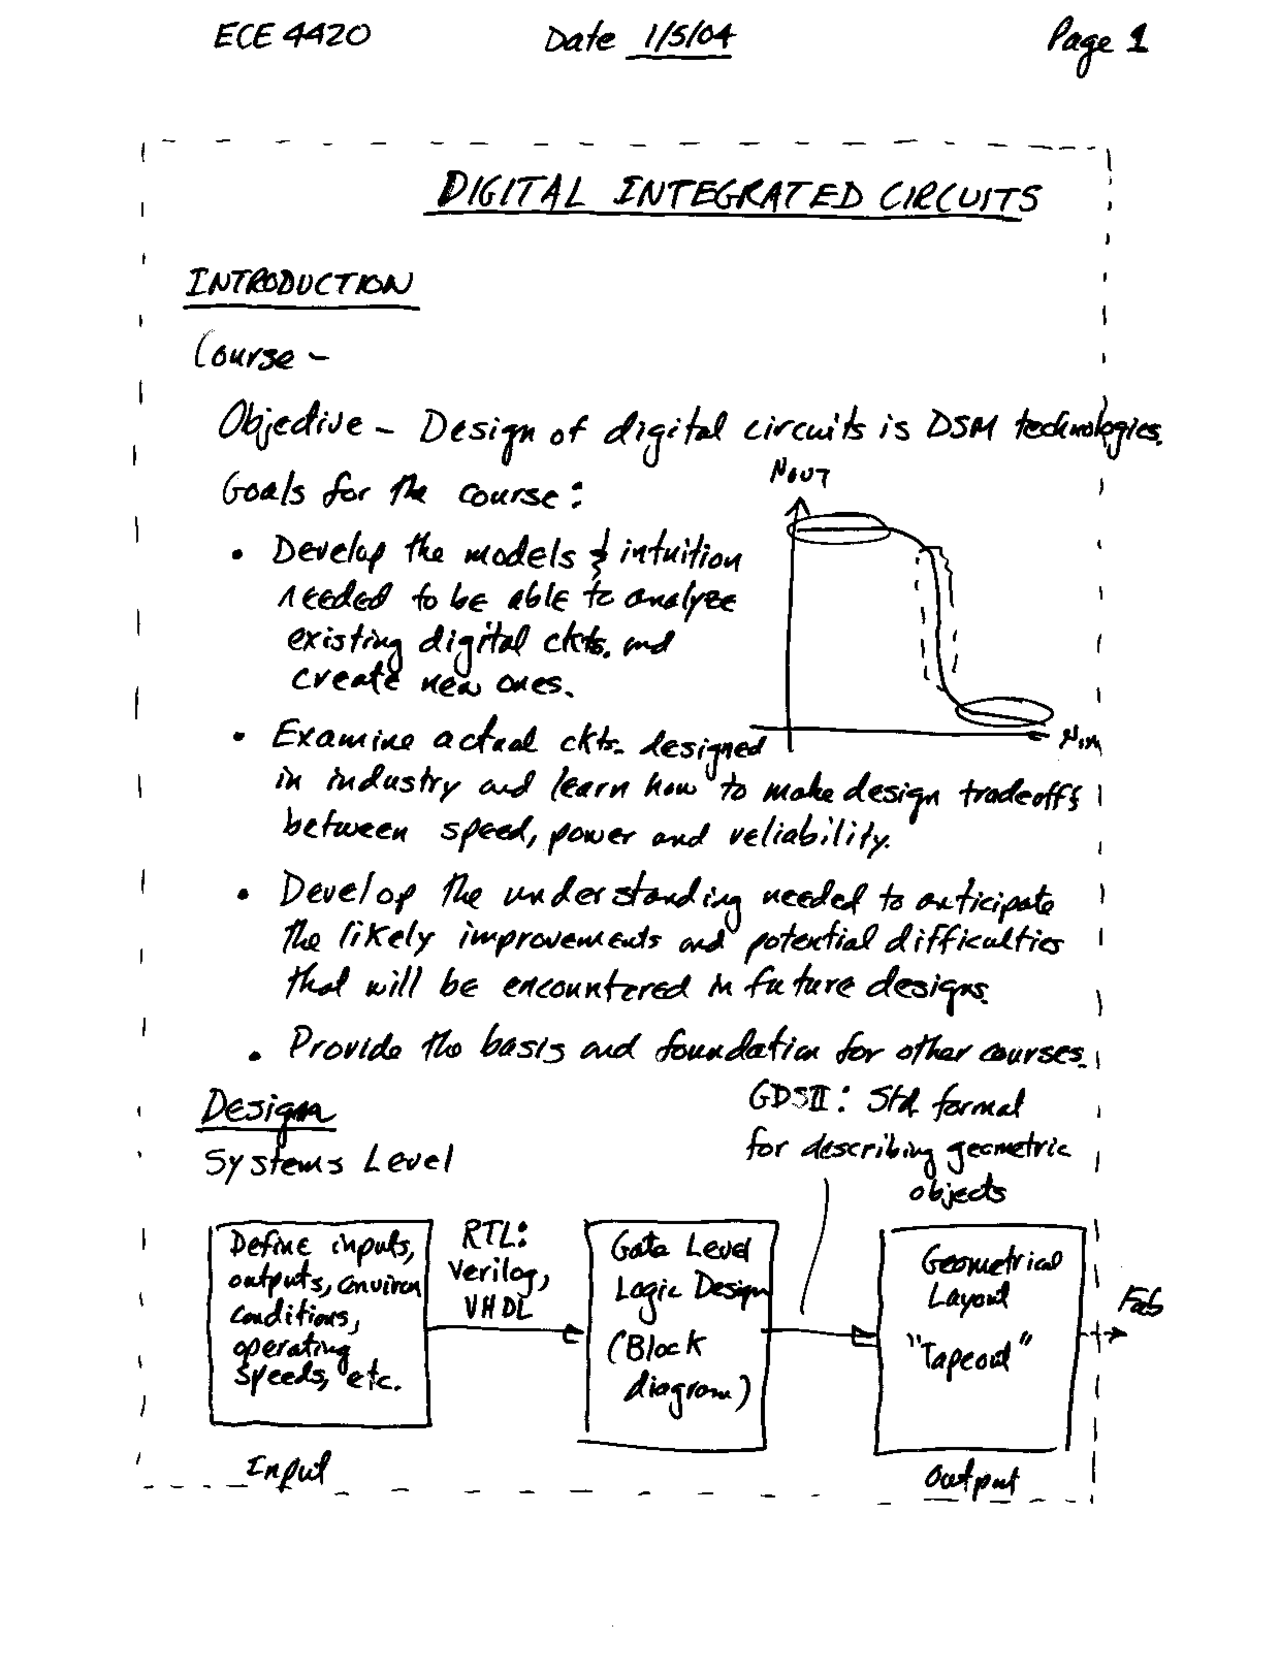 ECE 4420 Date 1/5/04 Page 1
DIGITAL INTEGRATED CIRCUITS
INTRODUCTION
Course –
Objective – Design of digital circuits is DSM technologies.
Goals for the course:
• Develop the models & intuition
needed to be able to analyze
existing digital ckts. and
create new ones.
NOUT
NIN
• Examine actual ckts. designed
in industry and learn how to make design tradeoffs
between speed, power and reliability.
• Develop the understanding needed to anticipate
the likely improvements and potential difficulties
that will be encountered in future designs.
• Provide the basis and foundation for other courses.
Design
Systems Level
GDSII: Std. format
for describing geometric
objects
Define inputs,
outputs, environ
conditions,
operating
speeds, etc.
Input
RTL:
Verilog,
VHDL
Gate Level
Logic Design
(Block
diagram)
Geometrical
Layout
"Tapeout"
Output
Fab